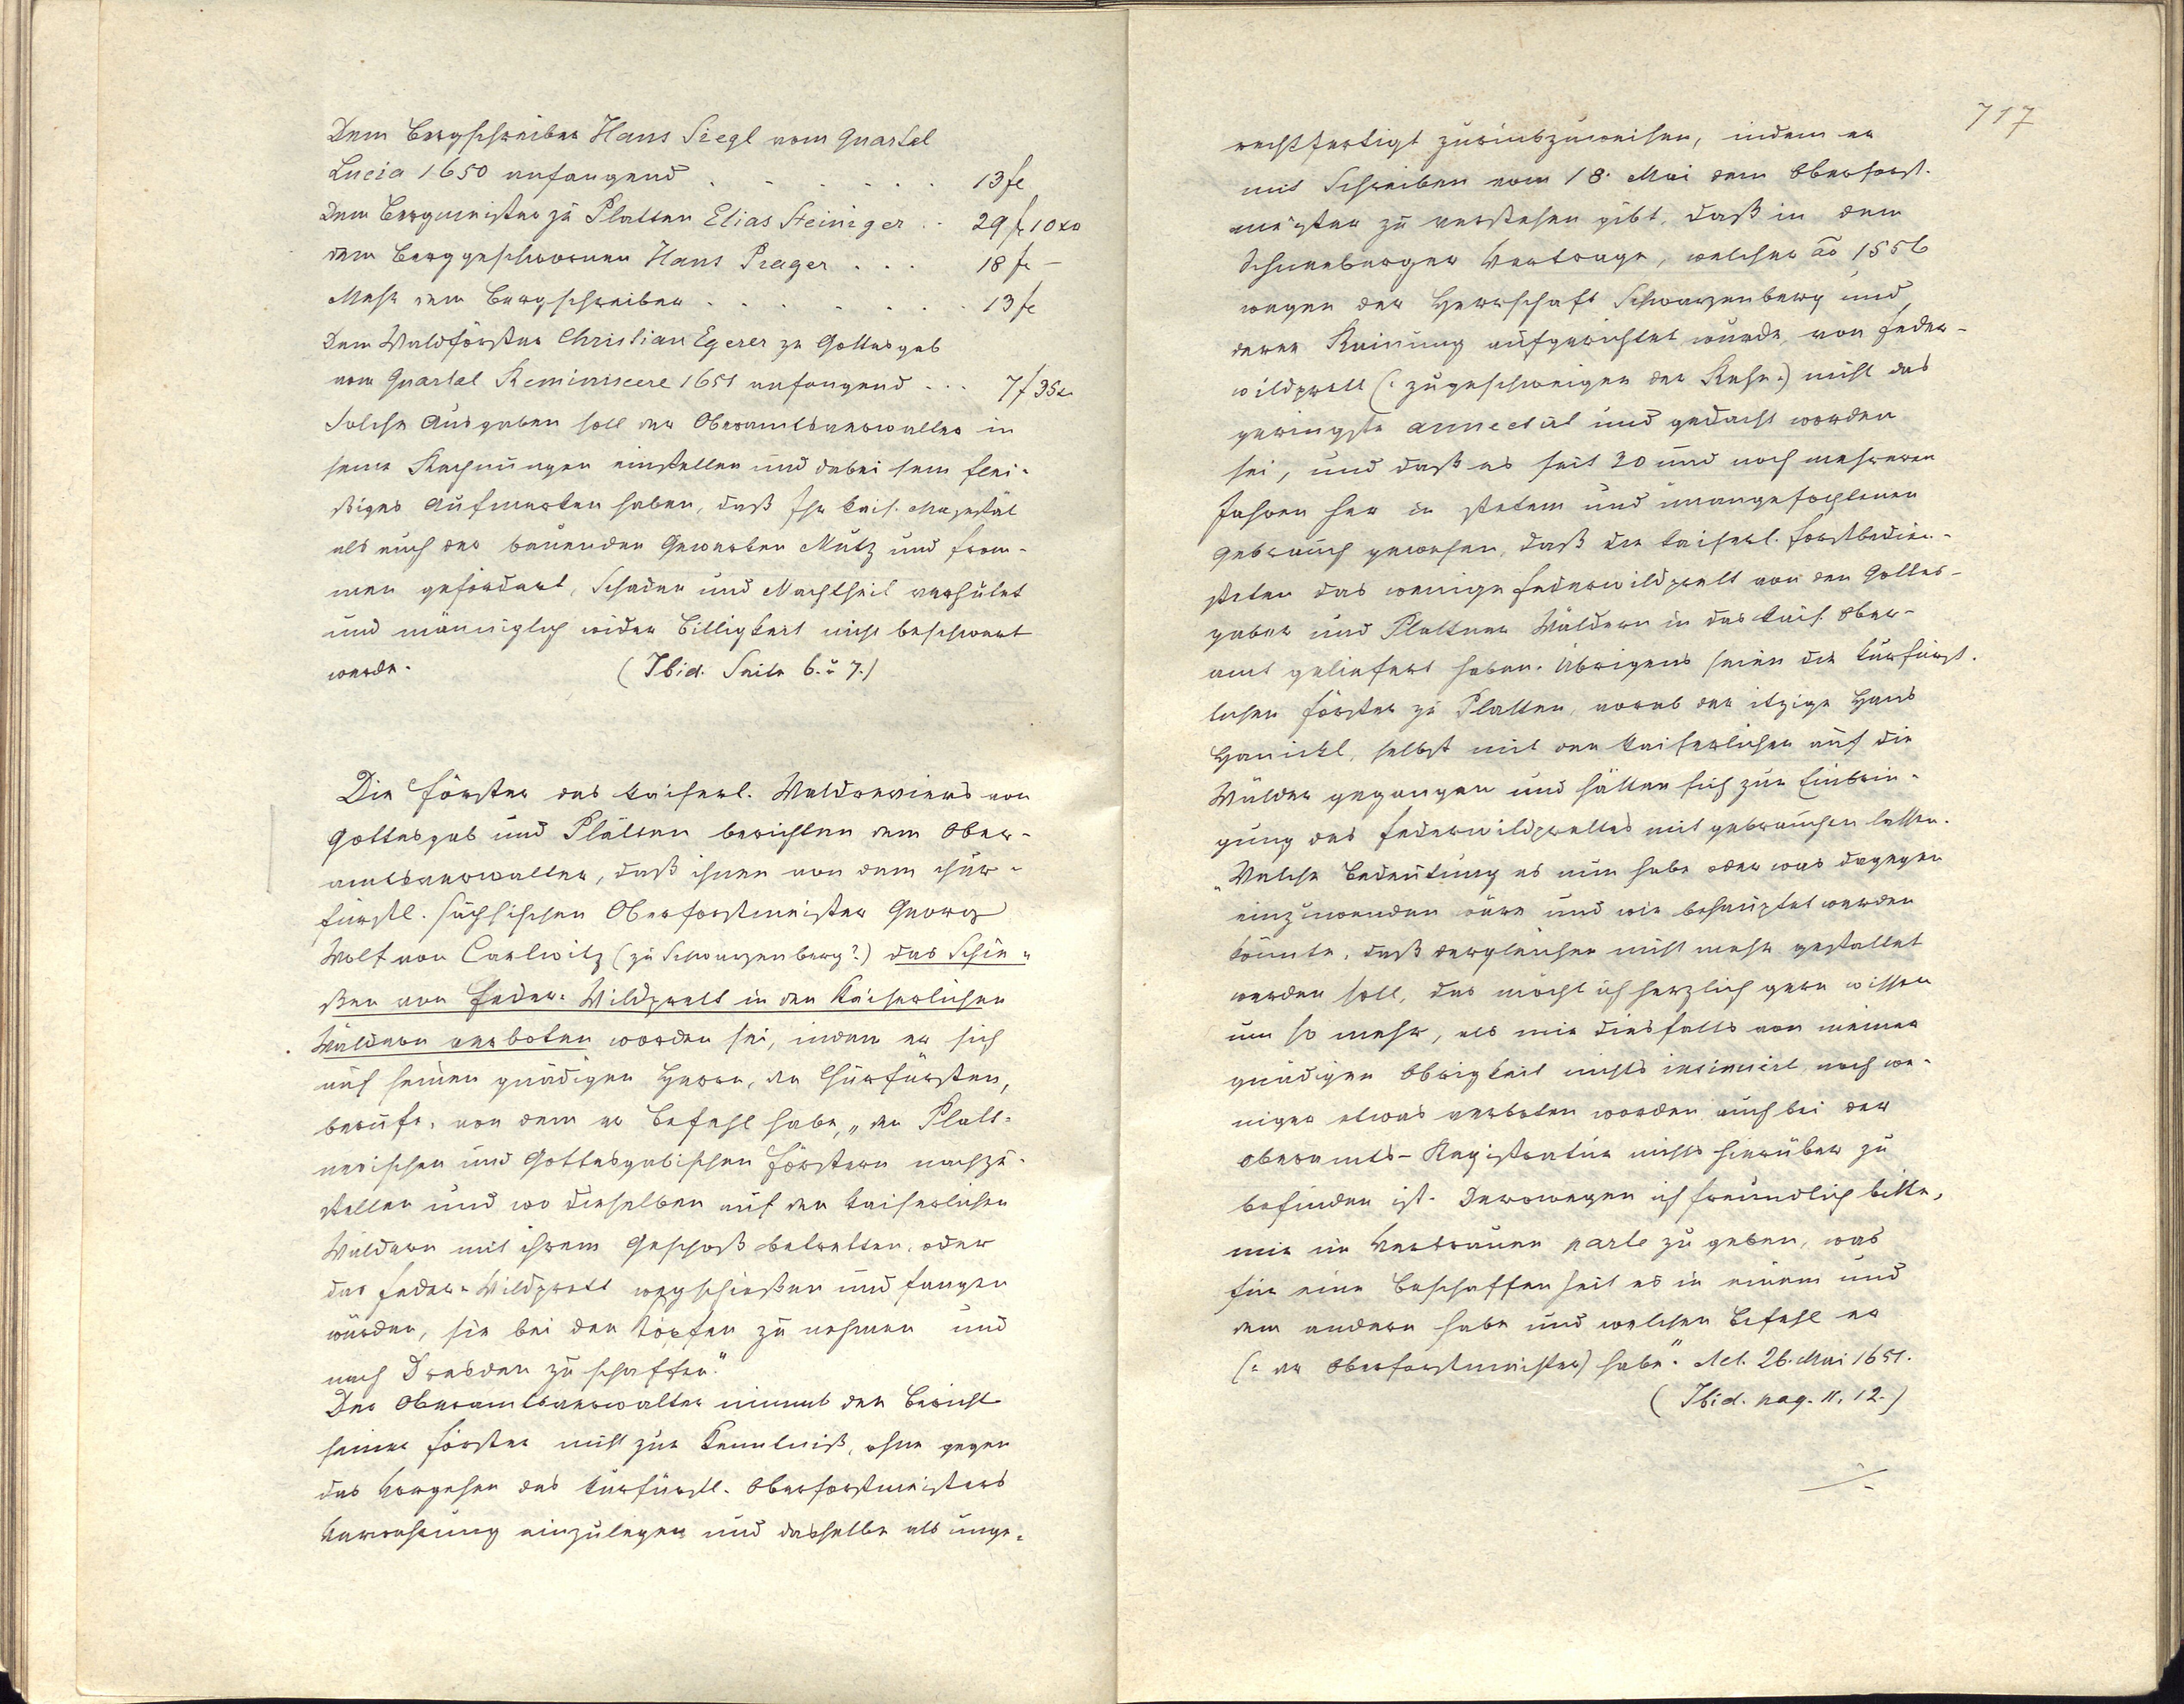 Dem Bergschreiber Hans Siegl vom Quartal
Lucia 1650 anfangend . . . . . . 13 fl
Dem Bergmeister zu Platten Elias Steiniger . . 29 fl 10 xr
dem Berggeschwornen Hans Prager . . . 18 fl –
Mehr dem Bergschreiber . . . . . . 13 fl
Dem Waldförster Christian Egerer zu Gottesgab
vom Quartal Reminiscere 1651 anfangend . . . 7 f 35 x
Solche Ausgaben soll der Oberamtsverwalter in
seine Rechnungen einstellen und dabei sein flei-
ßiges Aufmerken haben, daß Ihr kais. Majestät
als auch der bauenden Gewerken Nutz und From-
men gefördert, Schaden und Nachtheil verhütet
und männiglich wider Billigkeit nicht beschwert
werde. (Ibid. Seite 6. u 7.)
Die Förster des kaiserl. Waldreviers von
Gottesgab und Platten berichten dem Ober-
amtsverwalter, daß ihnen von dem chur-
fürstl. sächsischen Oberforstmeister Georg
Wolf von Carlwitz (zu Schwarzenberg?) das Schie-
ßen von Feder-Wildprett in den kaiserlichen
Wäldern verboten worden sei, indem er sich
auf seinen gnädigen Herrn, den Churfürsten,
berufe, von dem er Befehl habe, „den Platt-
nerischen und Gottesgabischen Förstern nachzu-
stellen und wo dieselben auf den kaiserlichen
Wäldern mit ihrem Geschoß betretten, oder
das Feder-Wildprett wegschießen und fangen
würden, sie bei den Köpfen zu nehmen und
nach Dresden zu schaffen."
Der Oberamtsverwalter nimmt den Bericht
seiner Förster nicht zur Kenntniß, ohne gegen
das Vorgehen des kurfürstl. Oberforstmeisters
Verwahrung einzulegen und dasselbe als unge-
717
rechtfertigt zurückzuweisen, indem er
mit Schreiben vom 18. Mai dem Oberforst-
meister zu verstehen gibt, daß in dem
Schneeberger Vertrage, welcher ao 1556
wegen der Herrschaft Schwarzenberg und
deren Rainung aufgerichtet wurde, von Feder-
wildprett (: zugeschweigen der Rehe :) nicht das
geringste annectirt und gedacht worden
sei, und daß es seit 30 und noch mehreren
Jahren her in stetem und unangefochtenen
Gebrauch gewesen, daß die kaiserl. Forstbedien-
steten das wenige Federwildprett von den Gottes-
gaber und Plattner Wäldern in das kais. Ober-
amt geliefert haben. Übrigens seien die kurfürst-
lichen Förster zu Platten, vorab der itzige Hans
Hanickl, selbst mit den kaiserlichen auf die
Wälder gegangen und hätten sich zur Einbrin-
gung des Federwildprettes mit gebrauchen lassen.
„Welche Bedeutung es nun habe oder was dagegen
einzuwenden wäre und wie behauptet werden
könnte, daß dergleichen nicht mehr gestattet
werden soll, das möcht ich herzlich gern wissen
um so mehr, als mir diesfalls von meiner
gnädigen Obrigkeit nichts insinuirt, noch we-
niger etwas verboten worden auch bei der
Oberamts-Registratur nichts hierüber zu
befinden ist. Derowegen ich freundlich bitte,
mir im Vertrauen parte zu geben, was
für eine Beschaffenheit es in einem und
dem andern habe und welchen Befehl er
(: der Oberforstmeister) habe." Act. 26. Mai 1651.
(Ibid. pag. 11, 12.)